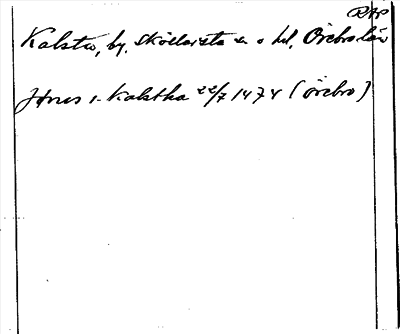 RAP
Kalsta, by, Sköllersta sn o hd, Örebro län
Jönes i Kalstha 22/7 1474 (Örebro)